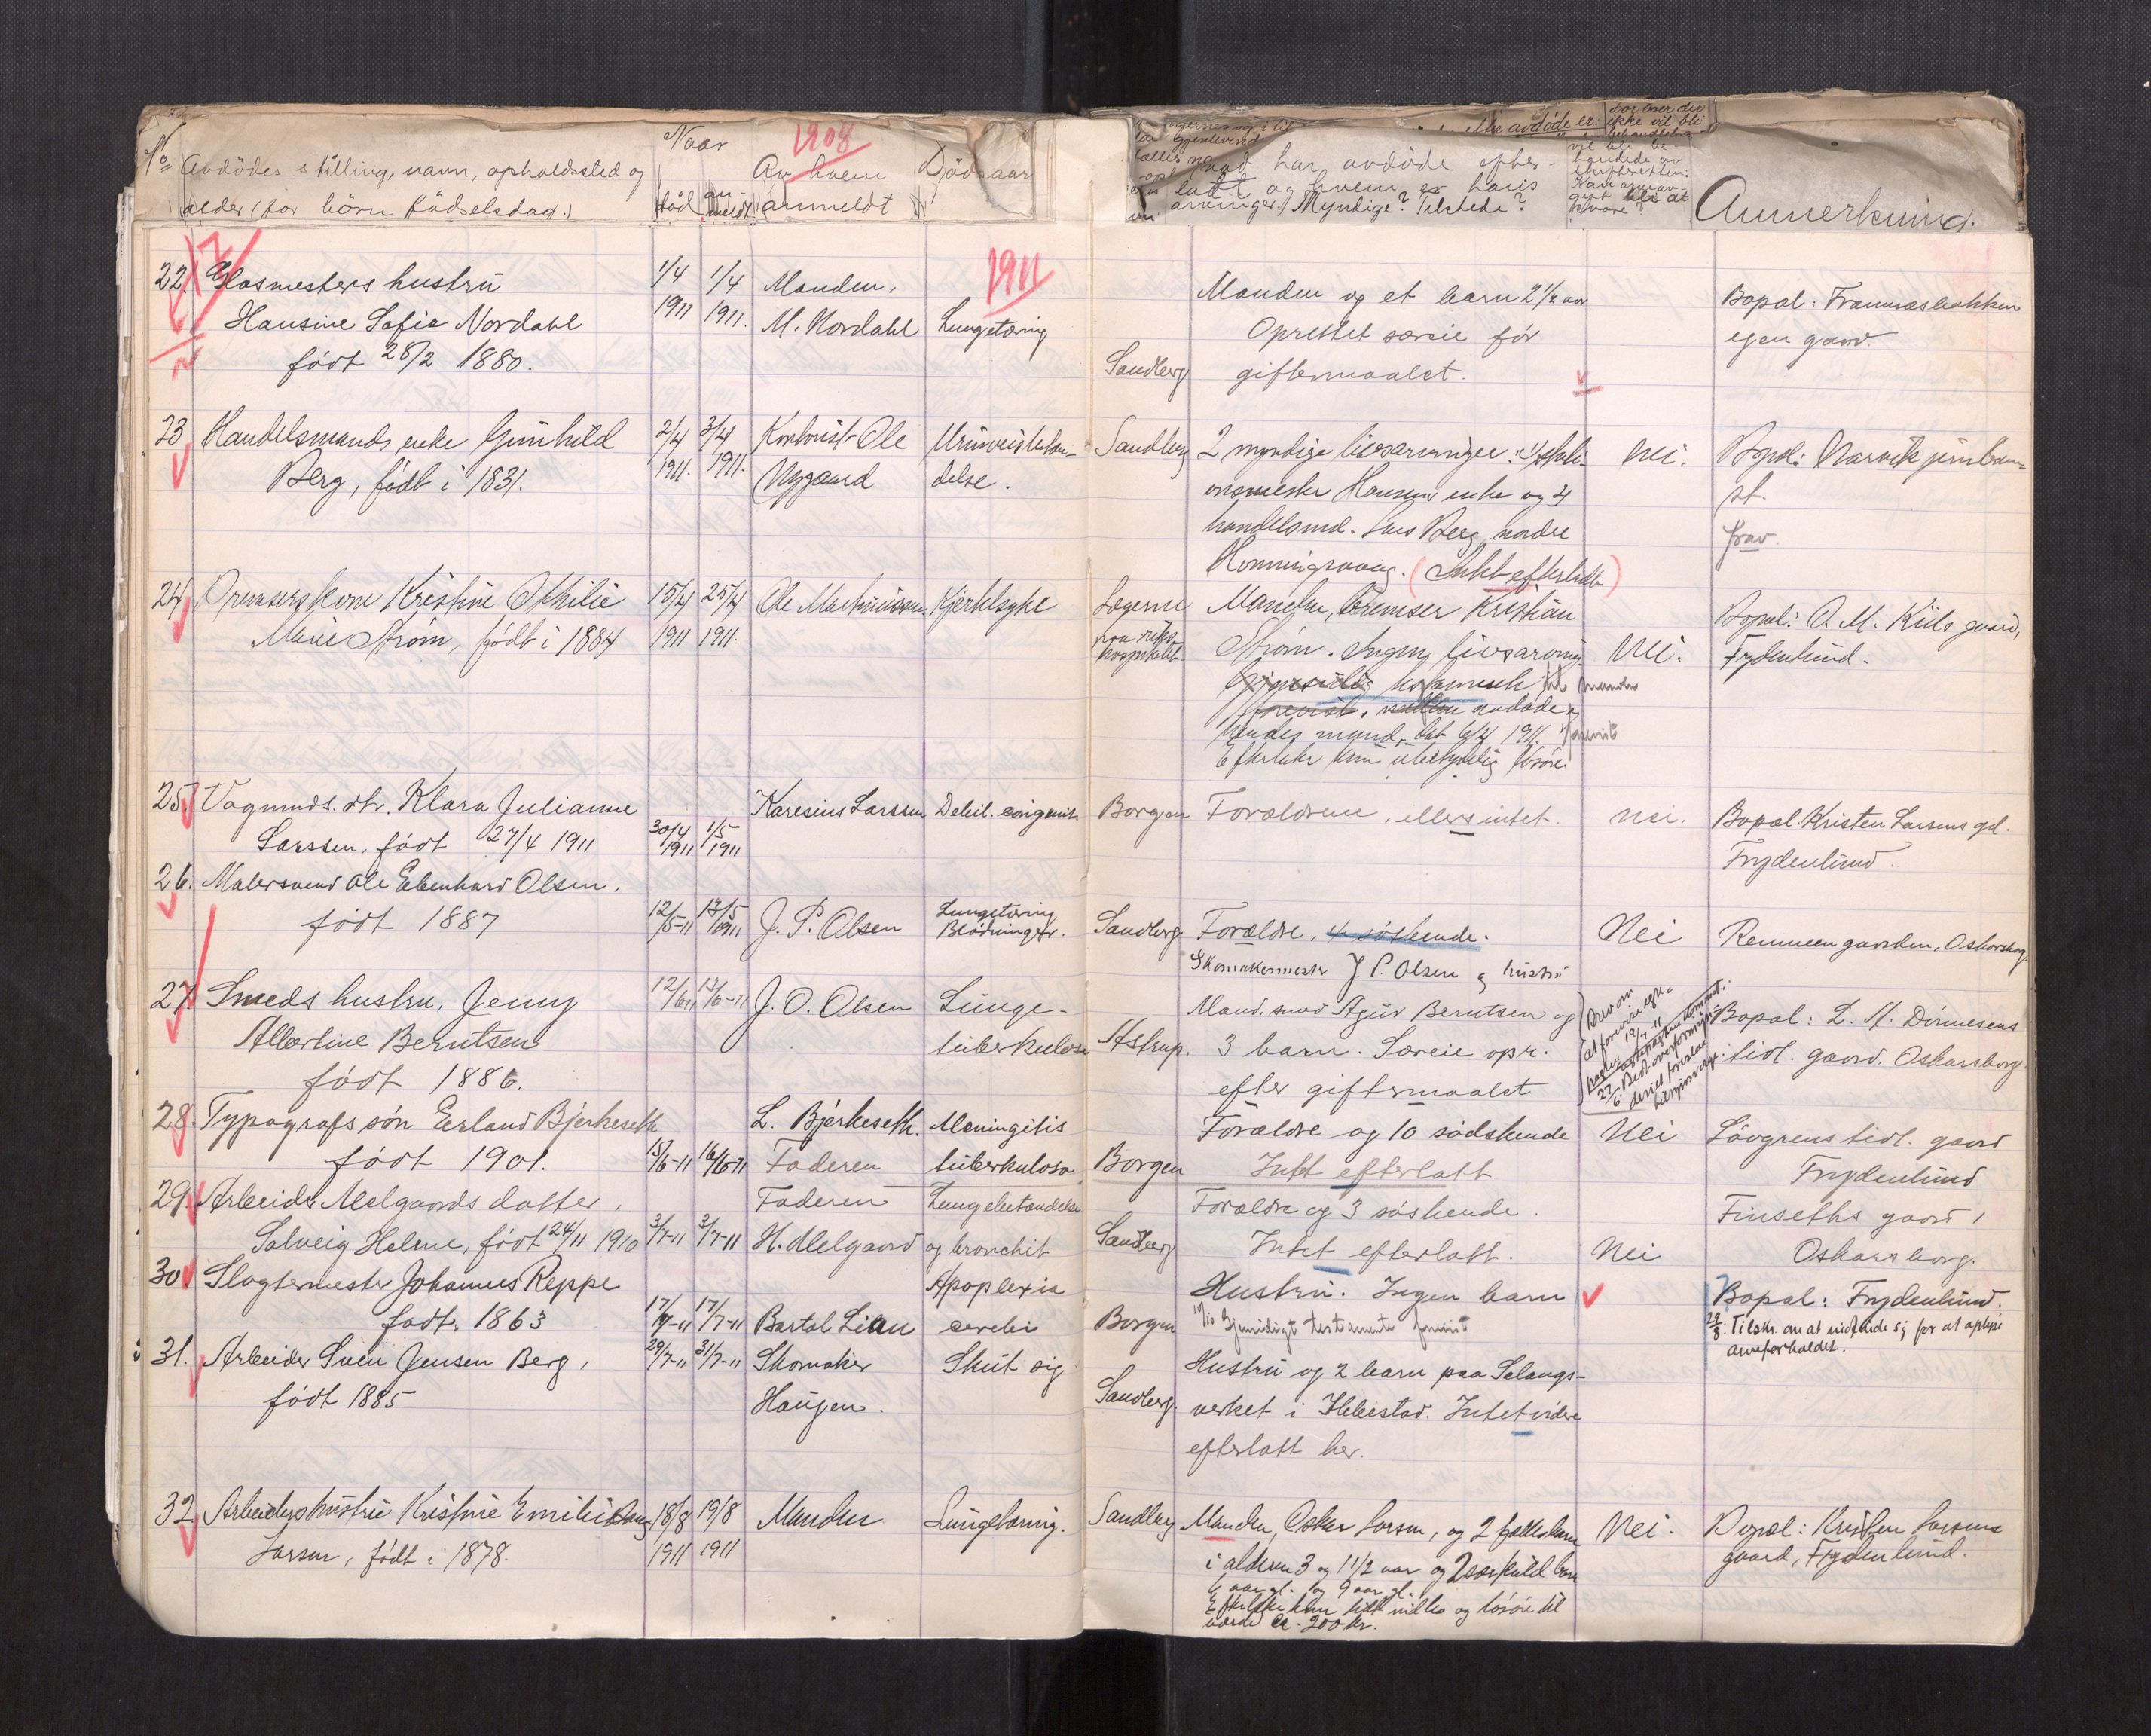 No
Avdödes stilling, navn, opholdssted og
alder (for börn födselsdag.)
Naar
död
an-
meldt
1908
Av hvem
anmeldt
Dödsaar
har avdöde efter-
latt og hvem er hans
arvinger? Myndige? Tilstede?
Anmerkning.
1911
22. Glasmesters hustru
Hansine Sofie Nordahl
födt 28/2 1880.
1/4
1911
1/4
1911.
Manden,
M. Nordahl
Lungetæring
Sandberg
Manden og et barn 2 1/2 aar
Oprettet særeie för
giftermaalet.
Bopæl: Framnesbakken
egen gaard.
23 Handelsmands enke Gunhild
Berg, födt i 1831.
2/4
1911.
3/4
1911.
Kontorist Ole
Nygaard
Urinveisbetæn-
delse.
Sandberg
2 myndige livsarvinger:
Hansens enke og
handelsmd. Lars Berg, nordre
Honningsvaag. (Intet efterladt)
Nei.
Bopæl: Narvik jernban-
st.
frav.
24 Bremserskone Kristine Othilie
Marie Ström, födt i 1884
15/4
1911
25/4
1911.
Ole Martinussen
Hjertesyke
Lægerne
paa riks-
hospitalet
Manden, bremser Kristian
Ström. Ingen livsarving.
avdöde og
hendes mand, dat 6/4 1911
Efterlater kun ubetydelig lösöre
Nei.
Bopæl: O. M. Kiils gaard,
Frydenlund.
25 Vognmds. dtr. Klara Julianne
Larssen, födt 27/4 1911
30/4
1911
1/5
1911
Karesius Larssen
Debil. congenit.
Borgen
Forældrene, ellers intet.
Nei.
Bopæl Kristen Larsens gd.
Frydenlund.
26. Malersvend Ole Edenhard Olsen,
födt 1887
12/5-11
13/5
1911
J. P. Olsen
Lungetæring
Blödninger.
Sandberg
Forældre, 4 söskende.
Skomakermester J. P. Olsen og hustru
Nei
Remmen gaarden, Oskarsborg
27 Smeds hustru, Jenny
Albertine Berntsen
födt 1886.
12/6-11
13/6-11
J. O. Olsen
Lunge-
tuberkulose
Astrup.
Mand, smed Agur Berntsen og
3 barn. Særeie opr.
efter giftermaalet
Bopæl: L. A. Dönnesens
tidl. gaard. Oskarsborg
28. Typografs sön Erland Bjerkeseth
födt 1901.
15/6-11
16/6-11
L. Bjerkeseth.
Faderen
Meningitis
tuberkulosa
Borgen
Forældre og 10 södskende
Intet efterlatt
Nei
Lövgrens tidl. gaard
Frydenlund
29. Arbeider Melgaards datter,
Solveig Helene, födt 24/11 1910
3/7-11
3/7-11
Faderen
H. Melgaard
Lungebetændelse
og bronchit
Sandberg
Forældre og 3 söskende.
Intet efterlatt.
Nei
Finseths gaard,
Oskarsborg.
30 Slagtermester Johannes Reppe
födt. 1863
17/7-11
17/7-11
Bartol Lian
Apoplexia
cerebri
Borgen
Hustru. Ingen barn
Gjensidigt testamente forevist
Bopæl: Frydenlund.
Tilskr. om at indfinde sig for at oplyse
arveforholdet.
31. Arbeider Sven Jensen Berg,
födt 1885
29/7-11
31/7-11
Skomaker
Haugen.
Skut sig
Sandberg.
Hustru og 2 barn paa Selangs-
verket i Ibbestad. Intet videre
efterlatt her.
32 Arbeiders hustru Kristine Emilie
Larsen, födt i 1878.
18/8
1911
19/8
1911
Manden
Lungetæring.
Sandberg
Manden, Oskar Larsen, og 2 fællesbarn
i alderen 3 og 1 1/2 aar og 2 særkuld barn
6 aar gl. og 9 aar gl.
Efterlater kun lidt indbo og lösöre til
værdi ca. 200 kr.
Nei.
Bopæl: Kristen Larsens
gaard, Frydenlund.